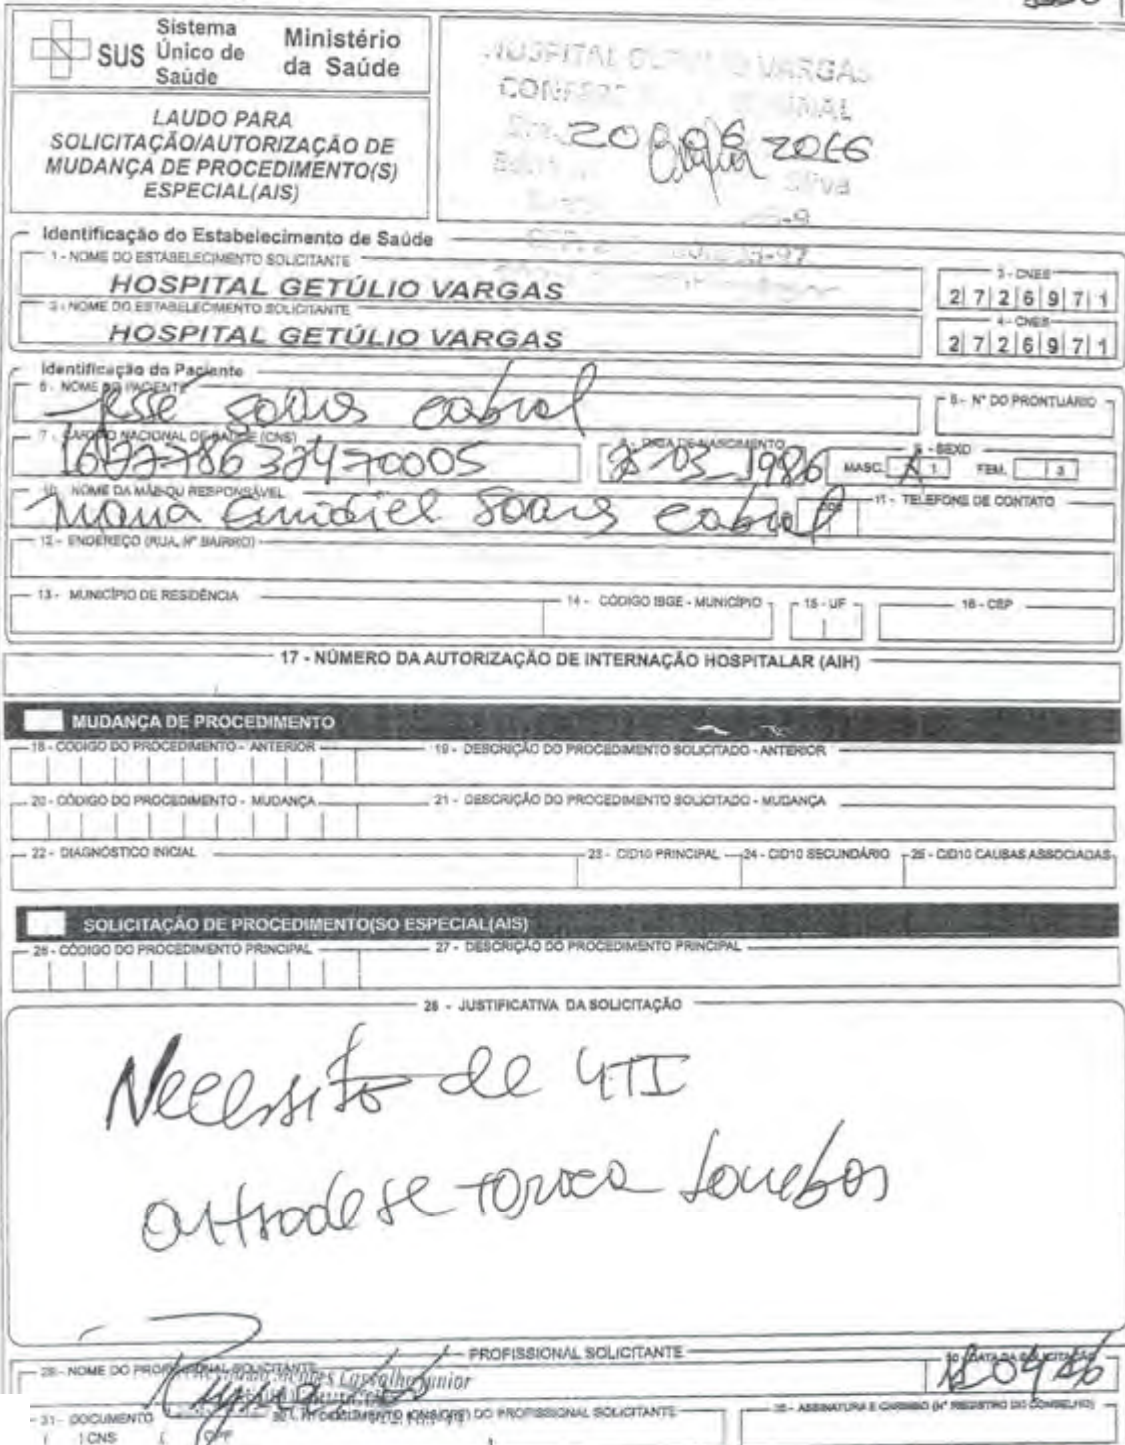 SUS Sistema Único de Saúde
Ministério da Saúde
LAUDO PARA
SOLICITAÇÃO/AUTORIZAÇÃO DE
MUDANÇA DE PROCEDIMENTO(S)
ESPECIAL(AIS)
HOSPITAL GETULIO VARGAS
20 06 2016
Identificação do Estabelecimento de Saúde
1 - NOME DO ESTABELECIMENTO SOLICITANTE
HOSPITAL GETÚLIO VARGAS
3 - CNES
2 7 2 6 9 7 1
NOME DO ESTABELECIMENTO SOLICITANTE
HOSPITAL GETÚLIO VARGAS
4 - CNES
2 7 2 6 9 7 1
Identificação do Paciente
NOME DO PACIENTE
Cabral
6 - N° DO PRONTUÁRIO
7 - CARTÃO NACIONAL DE SAÚDE (CNS)
DATA DE NASCIMENTO
03 1986
SEXO
MASC. X 1 FEM. 3
10 - NOME DA MÃE OU RESPONSÁVEL
Maria Soares Cabral
11 - TELEFONE DE CONTATO
12 - ENDEREÇO (RUA, N° BAIRRO)
13 - MUNICÍPIO DE RESIDÊNCIA
14 - CÓDIGO IBGE - MUNICÍPIO
15 - UF
16 - CEP
17 - NÚMERO DA AUTORIZAÇÃO DE INTERNAÇÃO HOSPITALAR (AIH)
MUDANÇA DE PROCEDIMENTO
18 - CÓDIGO DO PROCEDIMENTO - ANTERIOR
19 - DESCRIÇÃO DO PROCEDIMENTO SOLICITADO - ANTERIOR
20 - CÓDIGO DO PROCEDIMENTO - MUDANÇA
21 - DESCRIÇÃO DO PROCEDIMENTO SOLICITADO - MUDANÇA
22 - DIAGNÓSTICO INICIAL
23 - CID10 PRINCIPAL
24 - CID10 SECUNDÁRIO
25 - CID10 CAUSAS ASSOCIADAS
SOLICITAÇÃO DE PROCEDIMENTO(SO ESPECIAL(AIS)
26 - CÓDIGO DO PROCEDIMENTO PRINCIPAL
27 - DESCRIÇÃO DO PROCEDIMENTO PRINCIPAL
28 - JUSTIFICATIVA DA SOLICITAÇÃO
Necessito de UTI
artrodese
PROFISSIONAL SOLICITANTE
29 - NOME DO PROFISSIONAL SOLICITANTE
Carvalho Junior
30 - DATA DA SOLICITAÇÃO
31 - DOCUMENTO
( ) CNS ( ) CPF
DOCUMENTO (CNS/CPF) DO PROFISSIONAL SOLICITANTE
ASSINATURA E CARIMBO (N° REGISTRO DO CONSELHO)